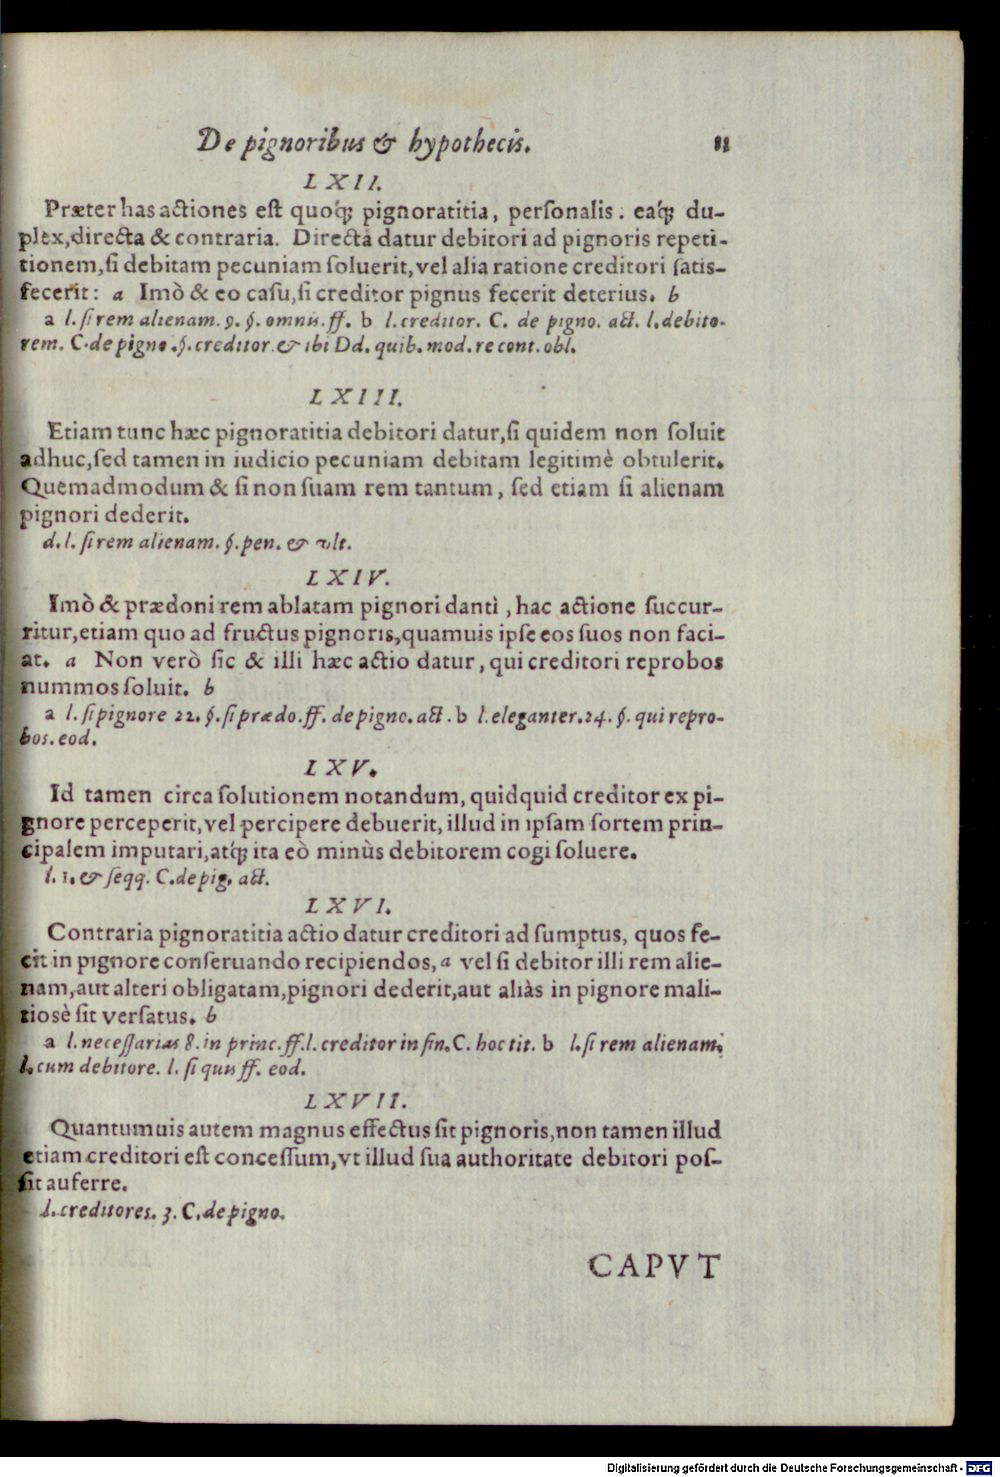 De pignoribus & hypothecis. 81
LXII.
Præter has actiones eſt quoq́; pignoratitia, perſonalis. eaq́; du-
plex, directa & contraria. Directa datur debitori ad pignoris repeti-
tionem, ſi debitam pecuniam ſoluerit, vel alia ratione creditori ſatis-
fecerit: a Imò & eo caſu, ſi creditor pignus fecerit deterius. b
a l. ſi rem alienam. 9. §. omnis. ff. b l. creditor. C. de pigno. act. l. debito-
rem. C. de pigno. §. creditor. & ibi Dd. quib. mod. re cont. obl.
LXIII.
Etiam tunc hæc pignoratitia debitori datur, ſi quidem non ſoluit
adhuc, ſed tamen in iudicio pecuniam debitam legitimè obtulerit.
Quemadmodum & ſi non ſuam rem tantum, ſed etiam ſi alienam
pignori dederit.
d. l. ſi rem alienam. §. pen. & vlt.
LXIV.
Imò & prædoni rem ablatam pignori danti, hac actione ſuccur-
ritur, etiam quo ad fructus pignoris, quamuis ipſe eos ſuos non faci-
at. a Non verò ſic & illi hæc actio datur, qui creditori reprobos
nummos ſoluit. b
a l. ſi pignore 22. §. ſi prædo. ff. de pigno. act. b l. eleganter. 24. §. qui repro-
bos. eod.
LXV.
Id tamen circa ſolutionem notandum, quidquid creditor ex pi-
gnore perceperit, vel percipere debuerit, illud in ipſam ſortem prin-
cipalem imputari, atq́; ita eò minùs debitorem cogi ſoluere.
l. 1. & ſeqq. C. de pig. act.
LXVI.
Contraria pignoratitia actio datur creditori ad ſumptus, quos fe-
cit in pignore conſeruando recipiendos, a vel ſi debitor illi rem alie-
nam, aut alteri obligatam, pignori dederit, aut aliàs in pignore mali-
tiosè ſit verſatus. b
a l. neceſſarias 8. in princ. ff. l. creditor in fin. C. hoc tit. b l. ſi rem alienam.
l. cum debitore. l. ſi quis ff. eod.
LXVII.
Quantumuis autem magnus effectus ſit pignoris, non tamen illud
etiam creditori eſt conceſſum, vt illud ſua authoritate debitori poſ-
ſit auferre.
l. creditores. 3. C. de pigno.
CAPVT
Digitalisierung gefördert durch die Deutsche Forschungsgemeinschaft - DFG